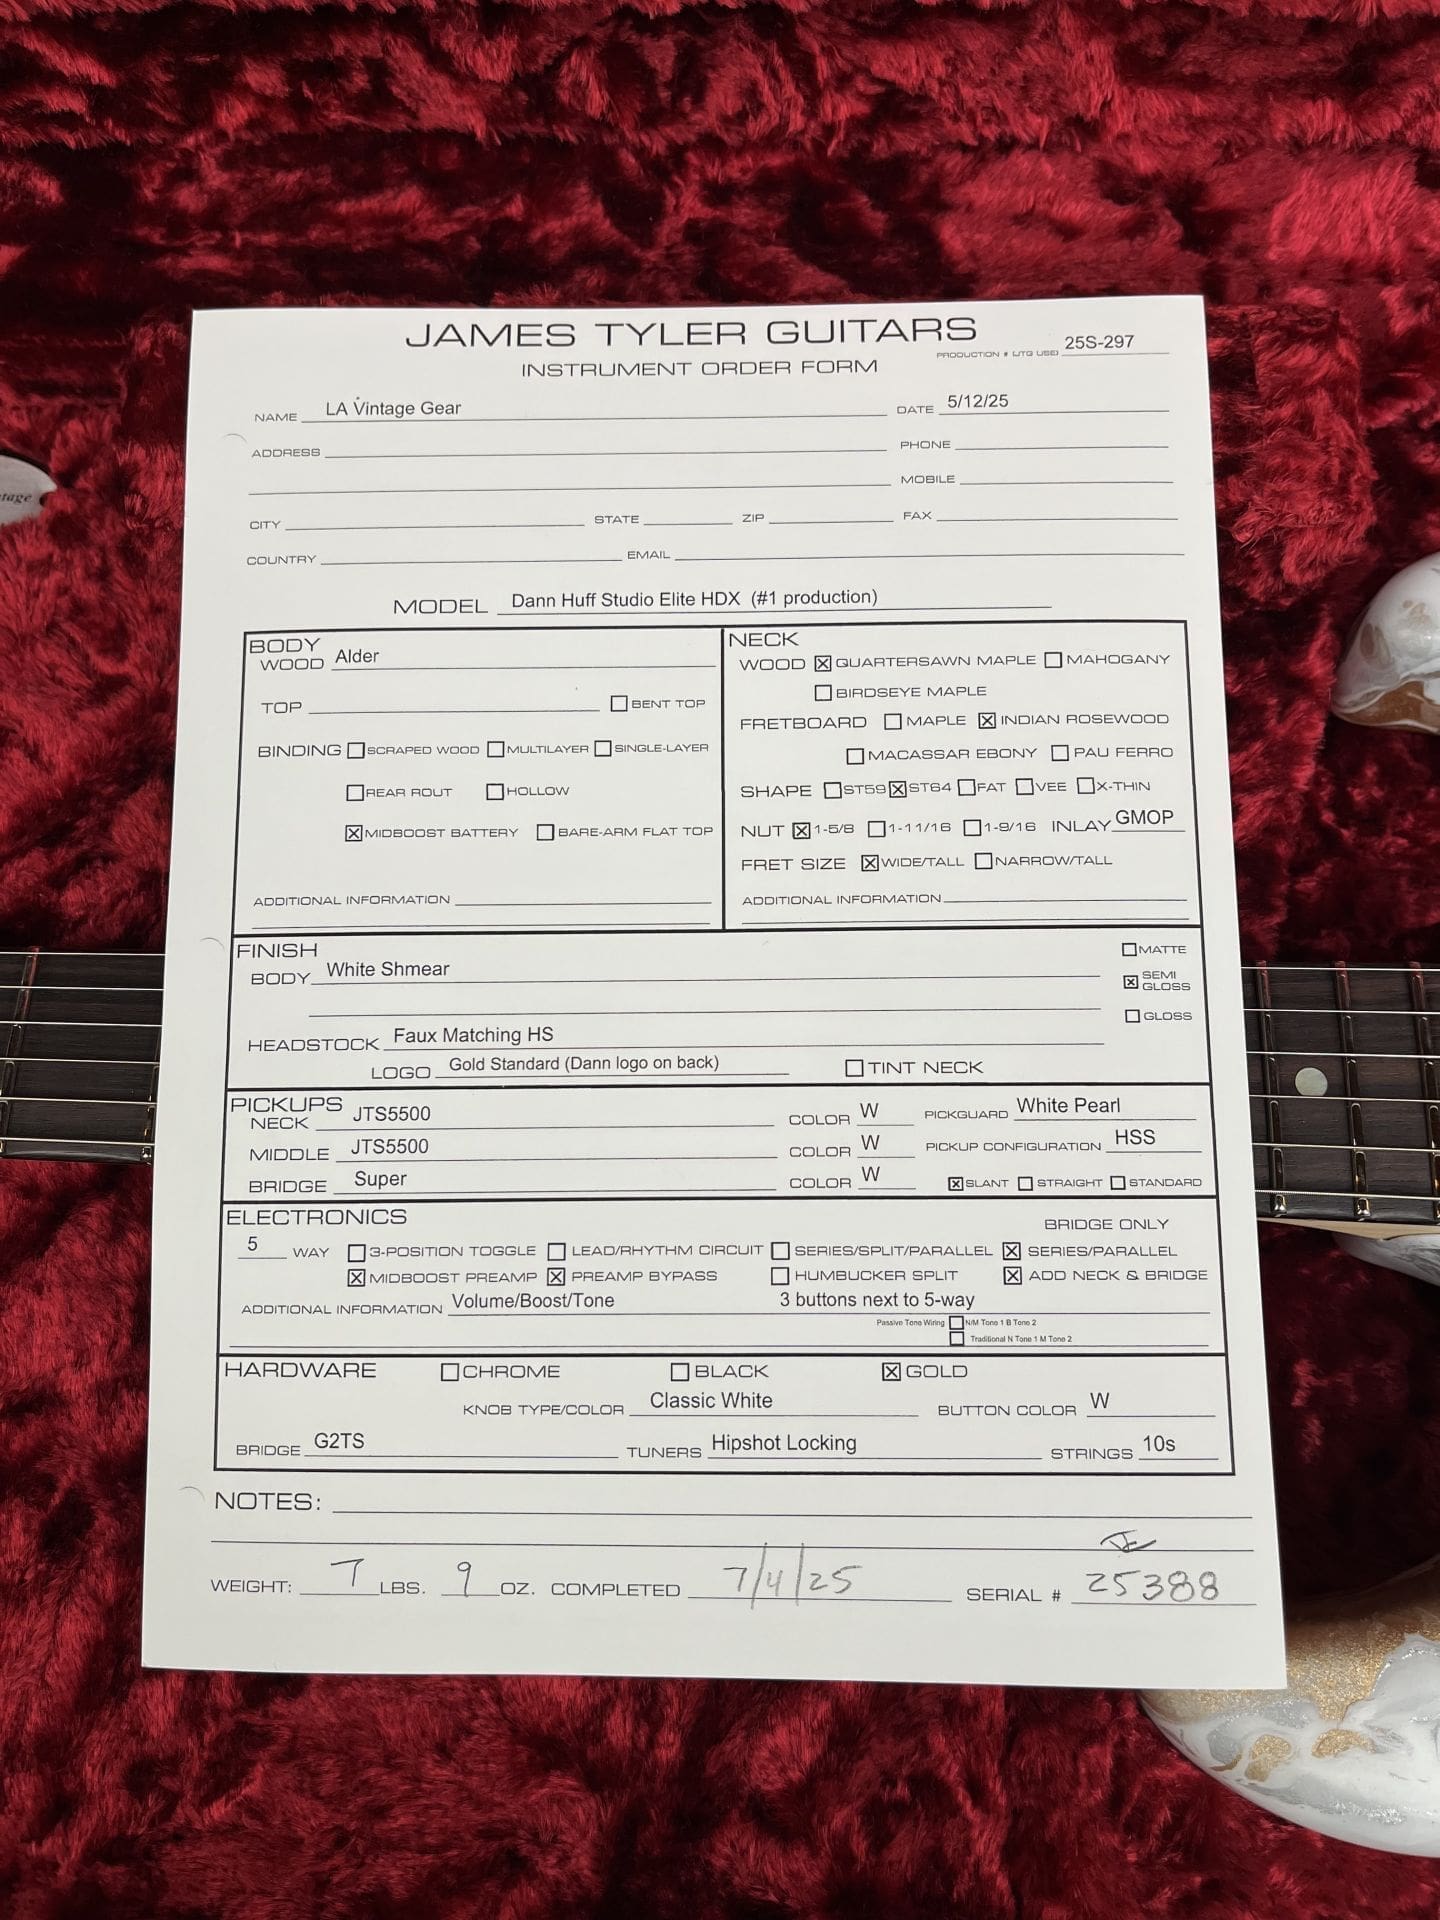 JAMES TYLER GUITARS
INSTRUMENT ORDER FORM
PRODUCTION # (JTG USE) 25S-297
NAME LA Vintage Gear DATE 5/12/25
ADDRESS PHONE
MOBILE
CITY STATE ZIP FAX
COUNTRY EMAIL
MODEL Dann Huff Studio Elite HDX (#1 production)
BODY
WOOD Alder
TOP ☐ BENT TOP
BINDING ☐ SCRAPED WOOD ☐ MULTILAYER ☐ SINGLE-LAYER
☐ REAR ROUT ☐ HOLLOW
☒ MIDBOOST BATTERY ☐ BARE-ARM FLAT TOP
ADDITIONAL INFORMATION
NECK
WOOD ☒ QUARTERSAWN MAPLE ☐ MAHOGANY
☐ BIRDSEYE MAPLE
FRETBOARD ☐ MAPLE ☒ INDIAN ROSEWOOD
☐ MACASSAR EBONY ☐ PAU FERRO
SHAPE ☐ ST59 ☒ ST64 ☐ FAT ☐ VEE ☐ X-THIN
NUT ☒ 1-5/8 ☐ 1-11/16 ☐ 1-9/16 INLAY GMOP
FRET SIZE ☒ WIDE/TALL ☐ NARROW/TALL
ADDITIONAL INFORMATION
FINISH
BODY White Shmear
☐ MATTE
☒ SEMI GLOSS
☐ GLOSS
HEADSTOCK Faux Matching HS
LOGO Gold Standard (Dann logo on back) ☐ TINT NECK
PICKUPS
NECK JTS5500 COLOR W PICKGUARD White Pearl
MIDDLE JTS5500 COLOR W PICKUP CONFIGURATION HSS
BRIDGE Super COLOR W ☒ SLANT ☐ STRAIGHT ☐ STANDARD
ELECTRONICS
BRIDGE ONLY
5 WAY ☐ 3-POSITION TOGGLE ☐ LEAD/RHYTHM CIRCUIT ☐ SERIES/SPLIT/PARALLEL ☒ SERIES/PARALLEL
☒ MIDBOOST PREAMP ☒ PREAMP BYPASS ☐ HUMBUCKER SPLIT ☒ ADD NECK & BRIDGE
ADDITIONAL INFORMATION Volume/Boost/Tone 3 buttons next to 5-way
Passive Tone Wiring ☐ N/M Tone 1 B Tone 2
☐ Traditional N Tone 1 M Tone 2
HARDWARE ☐ CHROME ☐ BLACK ☒ GOLD
KNOB TYPE/COLOR Classic White BUTTON COLOR W
BRIDGE G2TS TUNERS Hipshot Locking STRINGS 10s
NOTES:
WEIGHT: 7 LBS. 9 OZ. COMPLETED 7/4/25 SERIAL # 25388